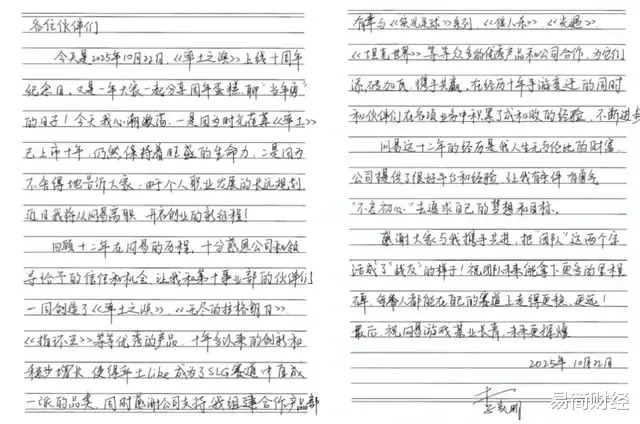 各位伙伴们
今天是2025年10月22日，《率土之滨》上线十周年
纪念日，又是一年大家一起分享周年蛋糕，聊“当年勇”
的日子！今天我心潮激荡，一是因为时光荏苒《率土》
已上市十年，仍然保持着旺盛的生命力，二是因为
不舍得地告诉大家，由于个人职业发展的长远规划，
近日我将从网易离职，开启创业的新征程！
回顾十二年在网易的历程，十分感恩公司和领
导给予的信任和机会，让我和第十事业部的伙伴们
一同创造了《率土之滨》、《无尽的拉格朗日》
《指环王》等等优秀的产品，十年多以来的创新和
稳步增长，使得率土Like成为了SLG赛道中自成
一派的品类，同时感谢公司支持我组建合作产品部
有幸与《实况足球》系列、《狼人杀》、《光遇》、
《坦克世界》等等众多的优秀产品和公司合作，为它们
添砖加瓦，携手共赢，在经历十年手游变迁的同时
和伙伴们在各项业务中积累了成和败的经验，不断进步
网易这十二年的经历是我人生无与伦比的财富，
公司提供了很好平台和经验，让我有条件有勇气
“不忘初心”去追求自己的梦想和目标。
感谢大家与我携手共进，把“团队”这两个字
活成了“战友”的样子！祝团队未来能拿下更多的里程
碑，每个人都能在自己的赛道上走得更稳，更远！
最后，祝网易游戏基业长青，未来更辉煌
2025年10月22日
易简财经